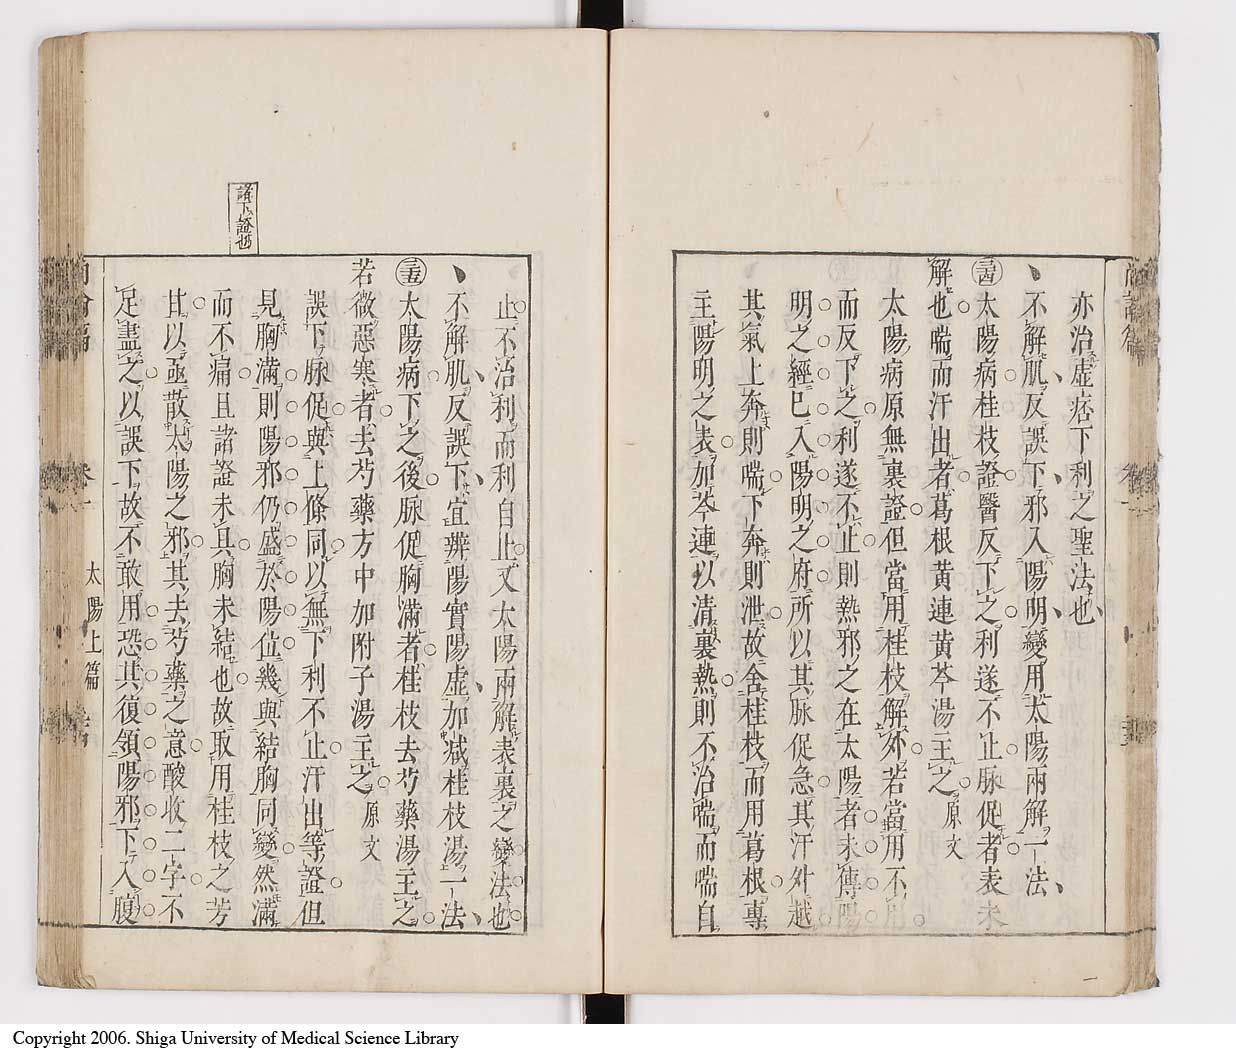 亦治虛痞下利之聖法也
不解肌反誤下邪入陽明變用太陽兩解一法
太陽病桂枝證醫反下之利遂不止脈促者表未
解也喘而汗出者葛根黃連黃芩湯主之 原文
太陽病原無裏證但當用桂枝解外若當用不用
而反下之利遂不止則熱邪之在太陽者未傳陽
明之經已入陽明之府所以其脈促急其汗外越
其氣上奔則喘下奔則泄故舍桂枝而用葛根專
主陽明之表加芩連以清裏熱則不治喘而喘自
止不治利而利自止又太陽兩解表裏之變法也
不解肌反誤下宜辨陽實陽虛加減桂枝湯一法
太陽病下之後脈促胸滿者桂枝去芍藥湯主之
若微惡寒者去芍藥方中加附子湯主之 原文
誤下脈促與上條同以無下利不止汗出等證但
見胸滿則陽邪仍盛於陽位幾與結胸同變然滿
而不痛且諸證未具胸未結也故取用桂枝之芳
甘以亟散太陽之邪其去芍藥之意酸收二字不
足盡之以誤下故不敢用恐其復領陽邪下入腹
諸下證也
尚論篇 卷一 太陽上篇
Copyright 2006. Shiga University of Medical Science Library